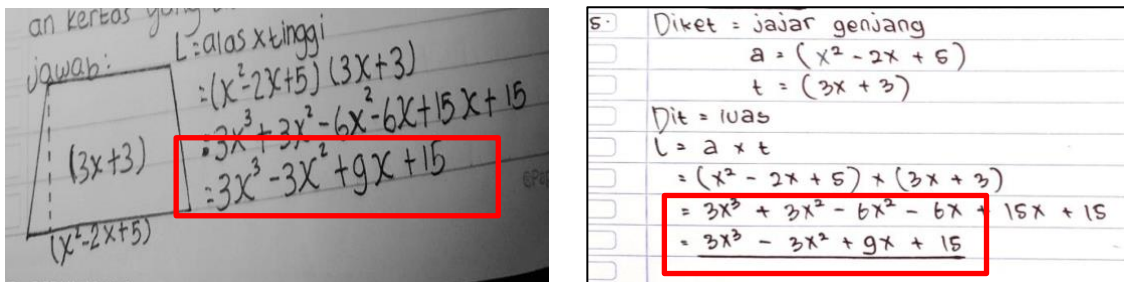 an kertas yang
jawab:
L = alas x tinggi
= (x²-2x+5) (3x+3)
= 3x³ + 3x² - 6x² - 6x + 15x + 15
= 3x³ - 3x² + 9x + 15
(3x+3)
(x²-2x+5)
5. Diket = jajar genjang
a = (x² - 2x + 5)
t = (3x + 3)
Dit = luas
L = a x t
= (x² - 2x + 5) x (3x + 3)
= 3x³ + 3x² - 6x² - 6x + 15x + 15
= 3x³ - 3x² + 9x + 15